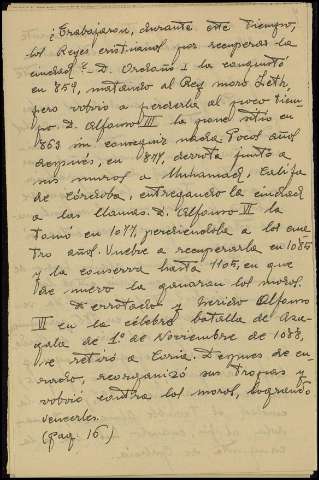 ¿Trabajaron, durante este tiempo,
los Reyes cristianos por recuperar la
ciudad? - D. Ordoño I la conquistó
en 859, matando al Rey moro Zeth,
pero volvió a perderla al poco tiem-
po. D. Alfonso III la pone sitio en
863 sin conseguir nada. Pocos años
después, en 877, derrota junto a
sus muros a Muhamad, Califa
de Córdoba, entregando la ciudad
a las llamas. D. Alfonso VI la
tomó en 1077, perdiéndola a los cua
tro años. Vuelve a recuperarla en 1085
y la conserva hasta 1105, en que
de nuevo la ganaran los moros.
Derrotado y herido Alfonso
VI en la célebre batalla de Sa-
gala de 1º de Noviembre de 1088,
se retiró a Coria. Despues de cu-
rado, reorganizó sus tropas y
volvió contra los moros, logrando
vencerles.
(pag. 16)